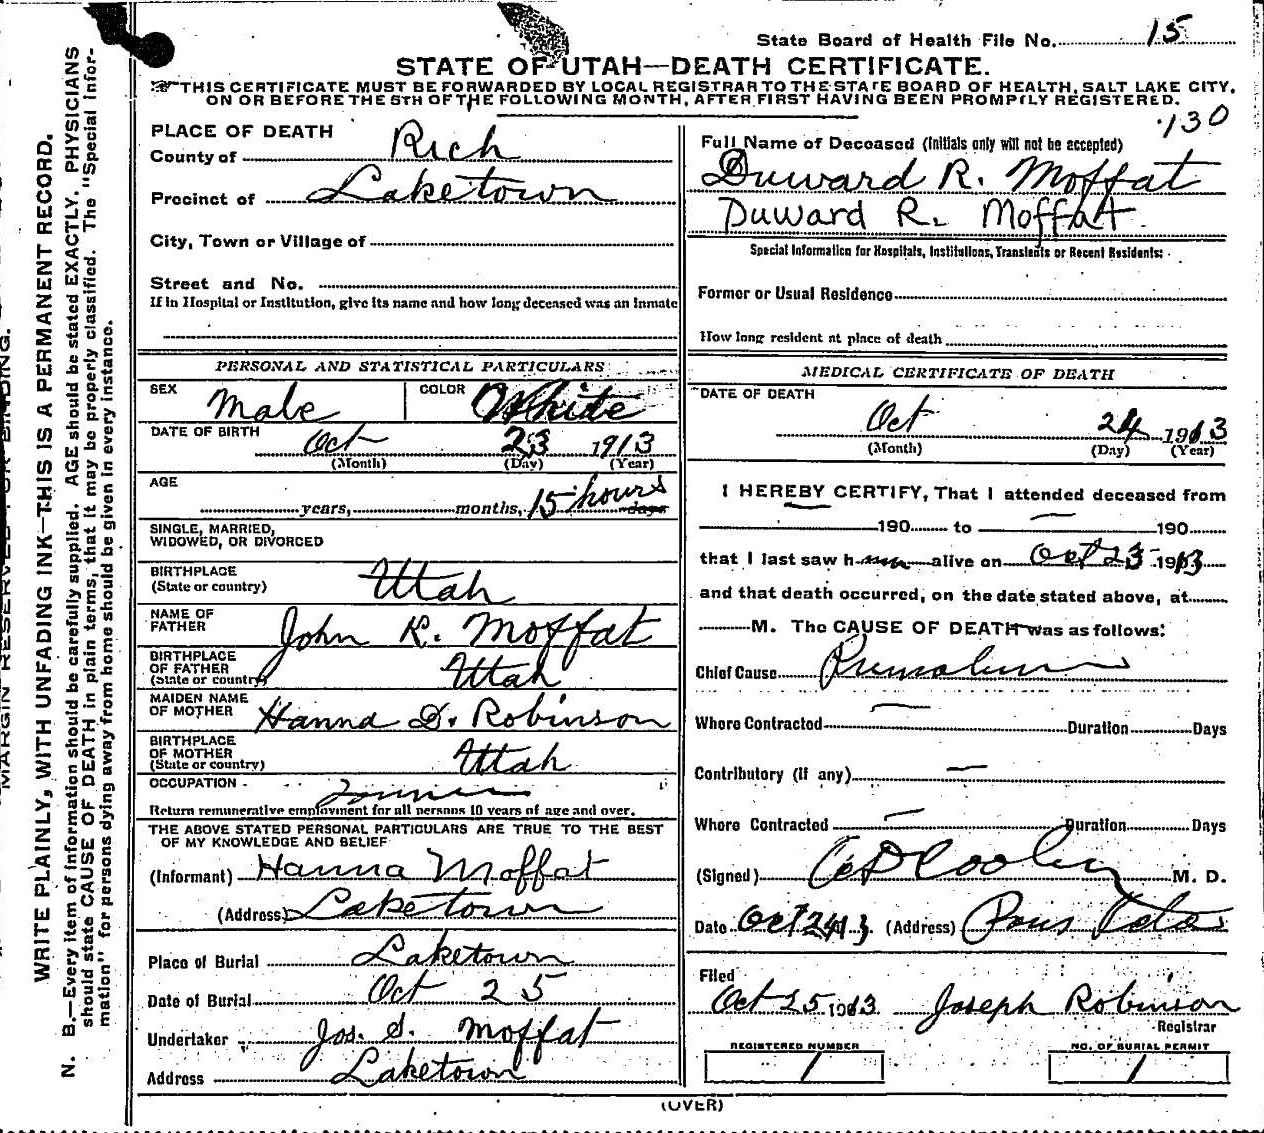 State Board of Health File No. 15
STATE OF UTAH—DEATH CERTIFICATE.
THIS CERTIFICATE MUST BE FORWARDED BY LOCAL REGISTRAR TO THE STATE BOARD OF HEALTH, SALT LAKE CITY,
ON OR BEFORE THE 5TH OF THE FOLLOWING MONTH, AFTER FIRST HAVING BEEN PROMPTLY REGISTERED.
130
PLACE OF DEATH
County of Rich
Precinct of Laketown
City, Town or Village of
Street and No.
If in Hospital or Institution, give its name and how long deceased was an inmate
Full Name of Deceased (Initials only will not be accepted)
Duward R. Moffat
Duward R. Moffat
Special Information for Hospitals, Institutions, Transients or Recent Residents:
Former or Usual Residence
How long resident at place of death
PERSONAL AND STATISTICAL PARTICULARS
SEX Male COLOR White
DATE OF BIRTH Oct 23 1913
(Month) (Day) (Year)
AGE
years, months, 15 hours days
SINGLE, MARRIED,
WIDOWED, OR DIVORCED
BIRTHPLACE
(State or country) Utah
NAME OF
FATHER John R. Moffat
BIRTHPLACE
OF FATHER
(State or country) Utah
MAIDEN NAME
OF MOTHER Hanna D. Robinson
BIRTHPLACE
OF MOTHER
(State or country) Utah
OCCUPATION
Return remunerative employment for all persons 10 years of age and over.
THE ABOVE STATED PERSONAL PARTICULARS ARE TRUE TO THE BEST
OF MY KNOWLEDGE AND BELIEF
(Informant) Hanna Moffat
(Address) Laketown
Place of Burial Laketown
Date of Burial Oct 25
Undertaker Jos. S. Moffat
Address Laketown
MEDICAL CERTIFICATE OF DEATH
DATE OF DEATH
Oct 24 1913
(Month) (Day) (Year)
I HEREBY CERTIFY, That I attended deceased from
— 190 to — 190
that I last saw h alive on Oct 23 1913
and that death occurred, on the date stated above, at
M. The CAUSE OF DEATH was as follows:
Chief Cause
Where Contracted — Duration Days
Contributory (if any) —
Where Contracted — Duration Days
(Signed) Cooley M. D.
Date Oct 24 13. (Address)
Filed
Oct 25 1913 Joseph Robinson
Registrar
REGISTERED NUMBER
1
NO. OF BURIAL PERMIT
1
(OVER)
MARGIN RESERVED FOR BINDING.
WRITE PLAINLY, WITH UNFADING INK—THIS IS A PERMANENT RECORD.
N. B.—Every item of information should be carefully supplied. AGE should be stated EXACTLY. PHYSICIANS
should state CAUSE OF DEATH in plain terms, that it may be properly classified. The "Special Infor-
mation" for persons dying away from home should be given in every instance.